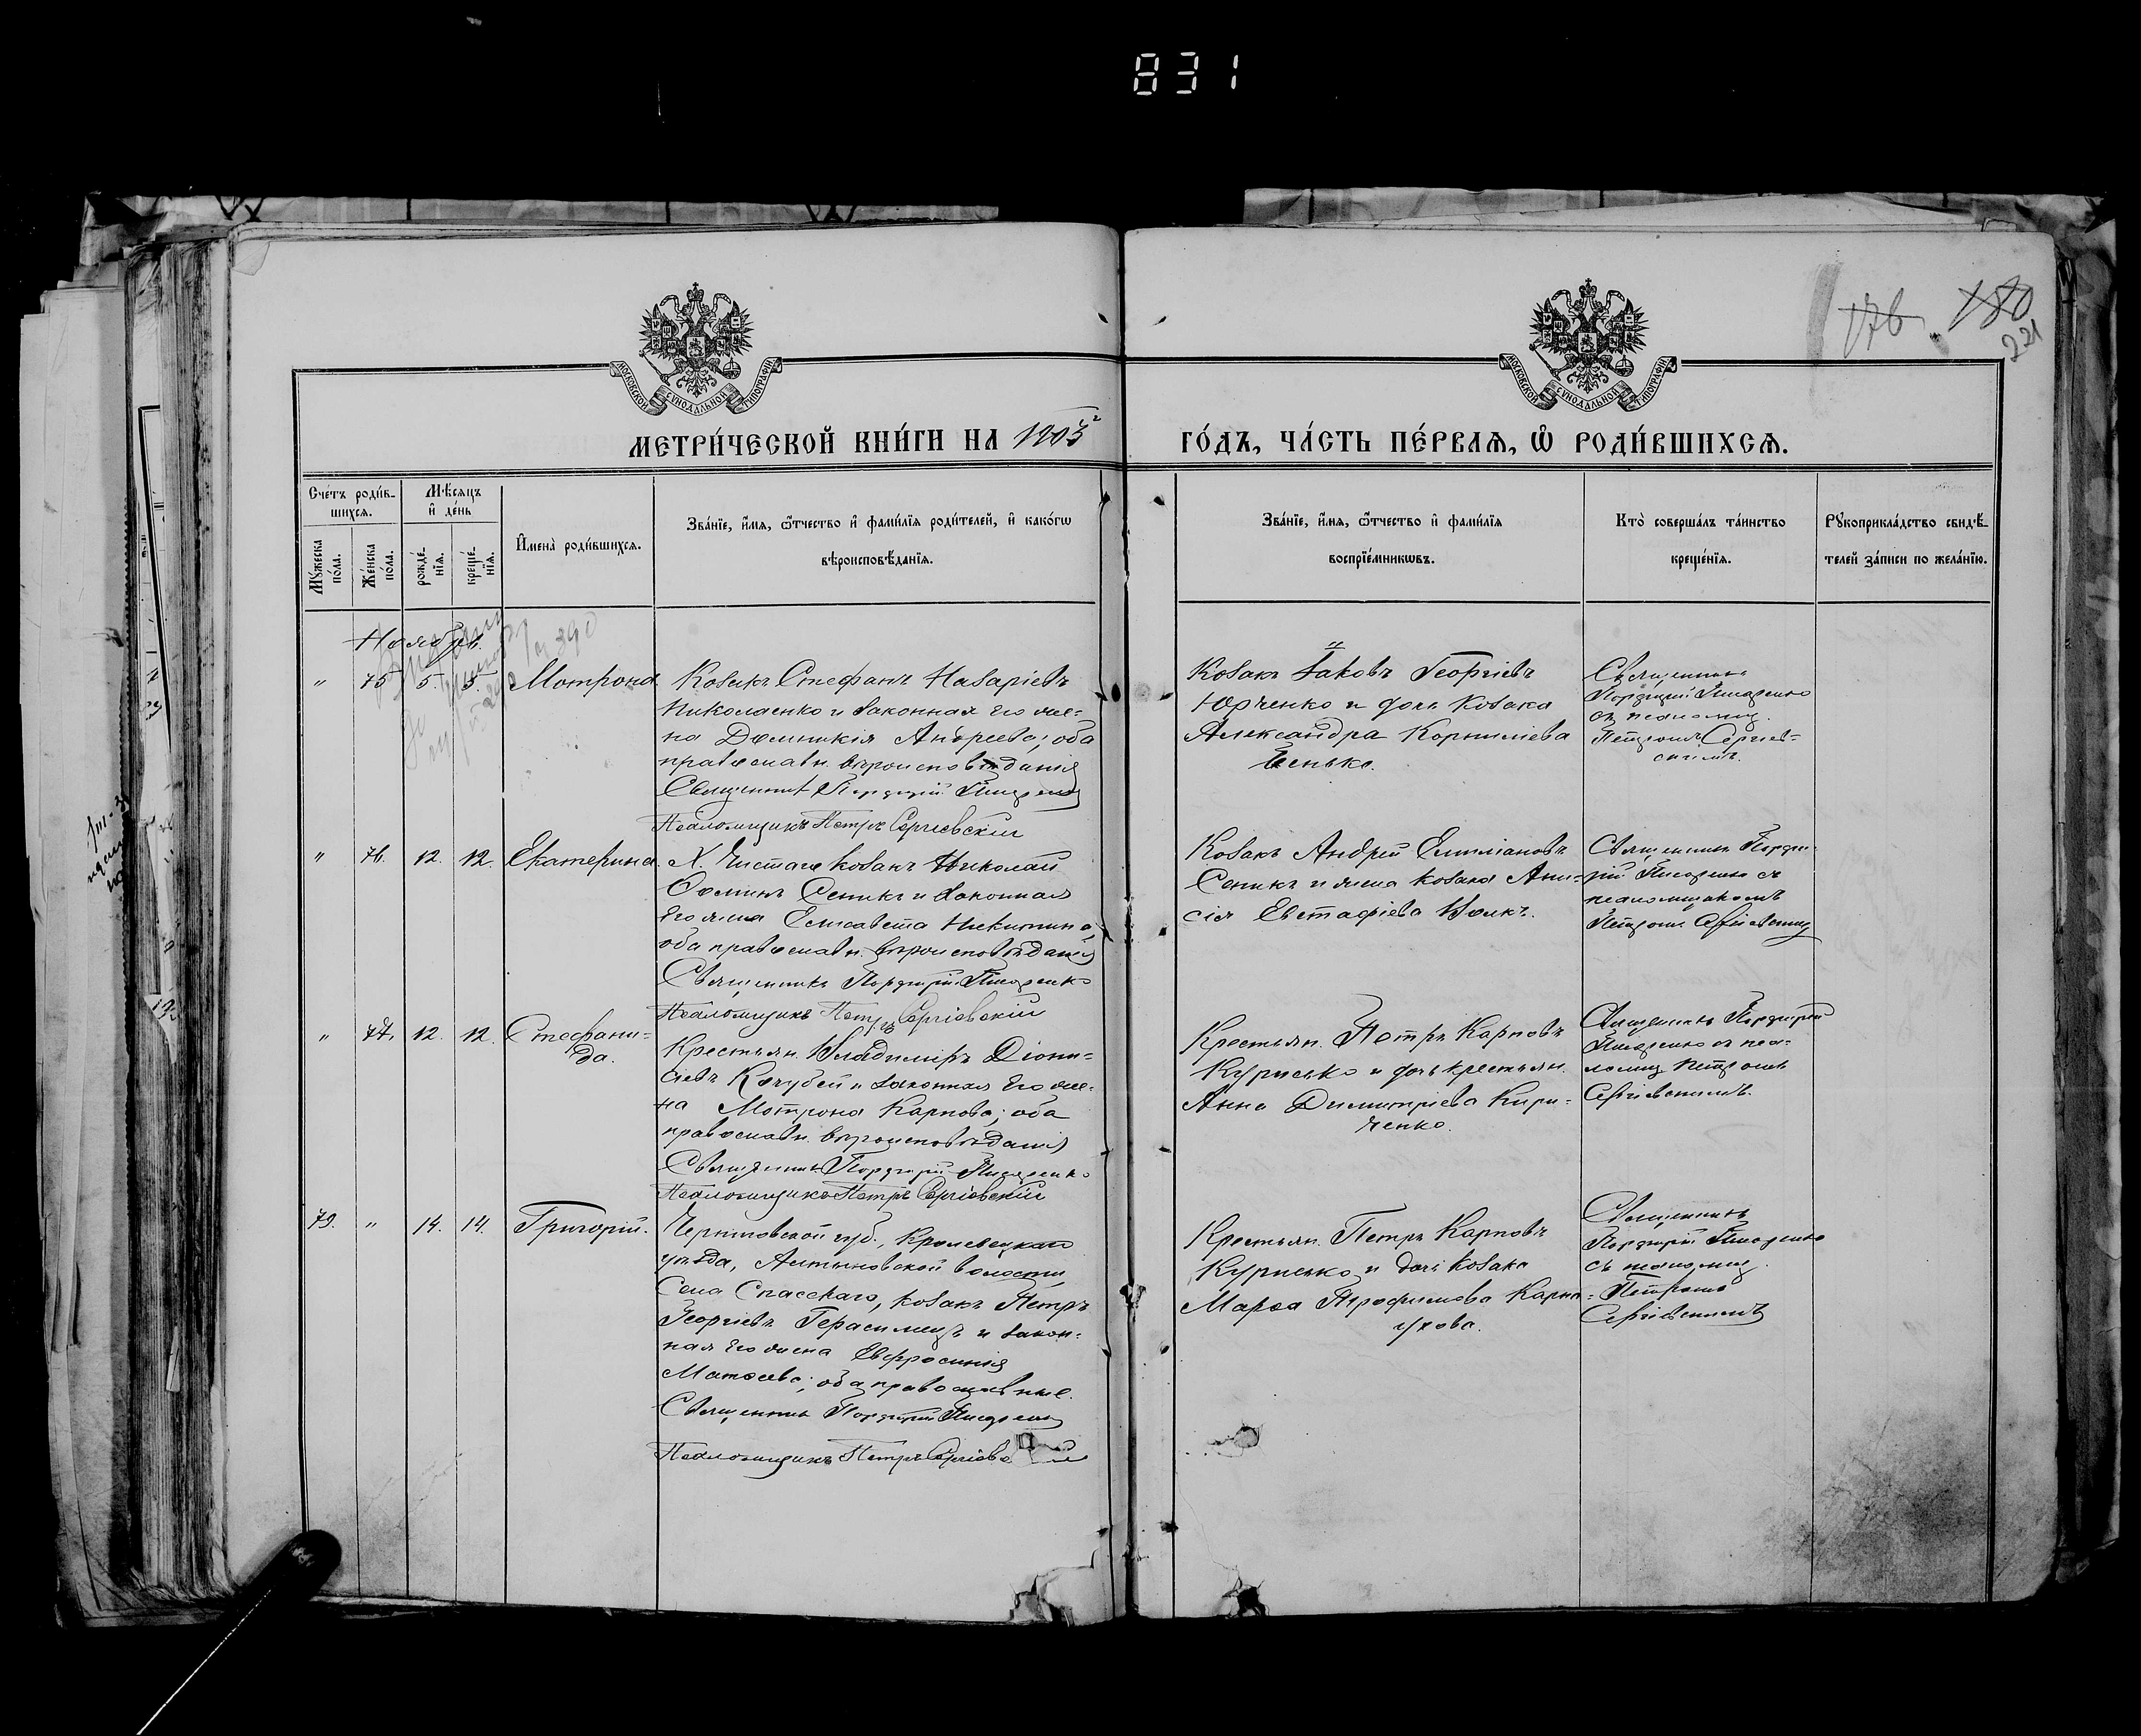 831
176
180
221
МОСКОВСКОЙ СѴНОДАЛЬНОЙ ТИПОГРАФІИ
МОСКОВСКОЙ СѴНОДАЛЬНОЙ ТИПОГРАФІИ
МЕТРИ́ЧЕСКОЙ КНИ́ГИ НА 1903 ГО́ДЪ, ЧА́СТЬ ПЕ́РВАѦ, Ѡ РОДИ́ВШИХСѦ.
Сче́тъ роди́в-
шихсѧ.
Мꙋ́жеска
по́ла.
Же́нска
по́ла.
Мѣ́сѧцъ
и҆ де́нь
рожде́-
нїѧ.
креще́-
нїѧ.
И҆мена̀ роди́вшихсѧ.
Зва́нїе, и҆́мѧ, ѻ҆́тчество и҆ фами́лїѧ роди́телей, и҆ како́гѡ
вѣроисповѣ́данїѧ.
Зва́нїе, и҆́мѧ, ѻ҆́тчество и҆ фами́лїѧ
воспрїе́мникѡвъ.
Кто̀ соверша́лъ та́инство
креще́нїѧ.
Рꙋкоприкла́дство свидѣ́-
телей за́писи по жела́нїю.
Ноябрь.
" 75 5. 5. Матрона
Козакъ Стефанъ Назаріевъ
Николаенко и законная его же-
на Домникія Андреева; оба
православн. вѣроисповѣданія
Священникъ Порфирій Писаренко
Псаломщикъ Петръ Сергіевскій
Козакъ Іаковъ Георгіевъ
Юрченко и дочь козака
Александра Корниліева
Священникъ
Порфирій Писаренко
съ псаломщ.
Петромъ Сергіев-
скимъ.
" 76. 12. 12. Екатерина
Х. Чистаго козакъ Николай
Ѳоминъ Сеникъ и законная
его жена Елисавета Никитина,
оба православн. вѣроисповѣданія
Священникъ Порфирій Писаренко
Псаломщикъ Петръ Сергіевскій
Козакъ Андрей Емиліановъ
Сеникъ и жена козака Ани-
сія Евстафіева Волкъ.
Священникъ Порфи-
рій Писаренко съ
псаломщикомъ
Петромъ Сергіевскимъ
" 77. 12. 12. Стефани-
да.
Крестьян. Владиміръ Діони-
сіевъ Кочубей и законная его же-
на Мотрона Карпова; оба
православн. вѣроисповѣданія
Священникъ Порфирій Писаренко
Псаломщикъ Петръ Сергіевскій
Крестьян. Петръ Карповъ
Курисько и дочь крестьян.
Анна Димитріева Кири-
ченко.
Священникъ Порфирій
Писаренко съ пса-
ломщ. Петромъ
Сергіевскимъ.
79. " 14. 14. Григорій.
Черниговской губ., Кролевецкаго
уѣзда, Алтыновской волости,
Села Спасскаго, козакъ Петръ
Георгіевъ Герасимецъ и закон-
ная его жена Евфросинія
Матѳеева; оба православные.
Священникъ Порфирій Писаренко
Псаломщикъ Петръ Сергіевскій
Крестьян. Петръ Карповъ
Курисько и дочь козака
Марѳа Трофимова Карна-
ухова.
Священникъ
Порфирій Писаренко
съ псаломщ.
Петромъ
Сергіевскимъ